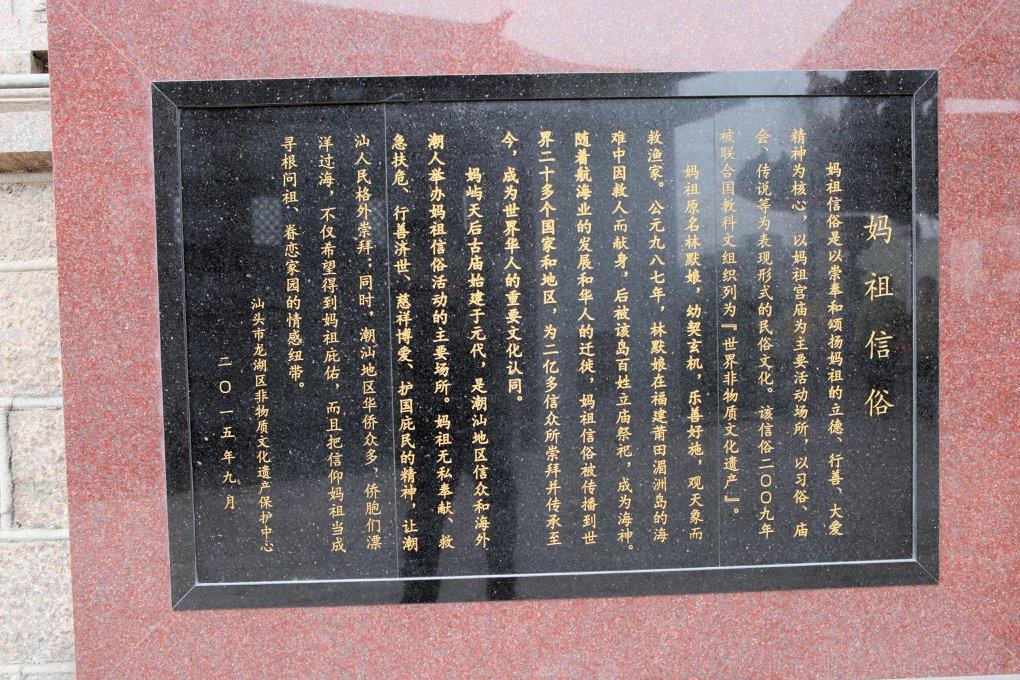 妈祖信俗
妈祖信俗是以崇奉和颂扬妈祖的立德、行善、大爱
精神为核心，以妈祖宫庙为主要活动场所，以习俗、庙
会、传说等为表现形式的民俗文化。该信俗二〇〇九年
被联合国教科文组织列为『世界非物质文化遗产』。
妈祖原名林默娘，幼契玄机，乐善好施，观天象而
救渔家。公元九八七年，林默娘在福建莆田湄洲岛的海
难中因救人而献身，后被该岛百姓立庙祭祀，成为海神。
随着航海业的发展和华人的迁徙，妈祖信俗被传播到世
界二十多个国家和地区，为二亿多信众所崇拜并传承至
今，成为世界华人的重要文化认同。
妈屿天后古庙始建于元代，是潮汕地区信众和海外
潮人举办妈祖信俗活动的主要场所。妈祖无私奉献、救
急扶危、行善济世、慈祥博爱、护国庇民的精神，让潮
汕人民格外崇拜；同时，潮汕地区华侨众多，侨胞们漂
洋过海，不仅希望得到妈祖庇佑，而且把信仰妈祖当成
寻根问祖、眷恋家园的情感纽带。
汕头市龙湖区非物质文化遗产保护中心
二〇一五年九月